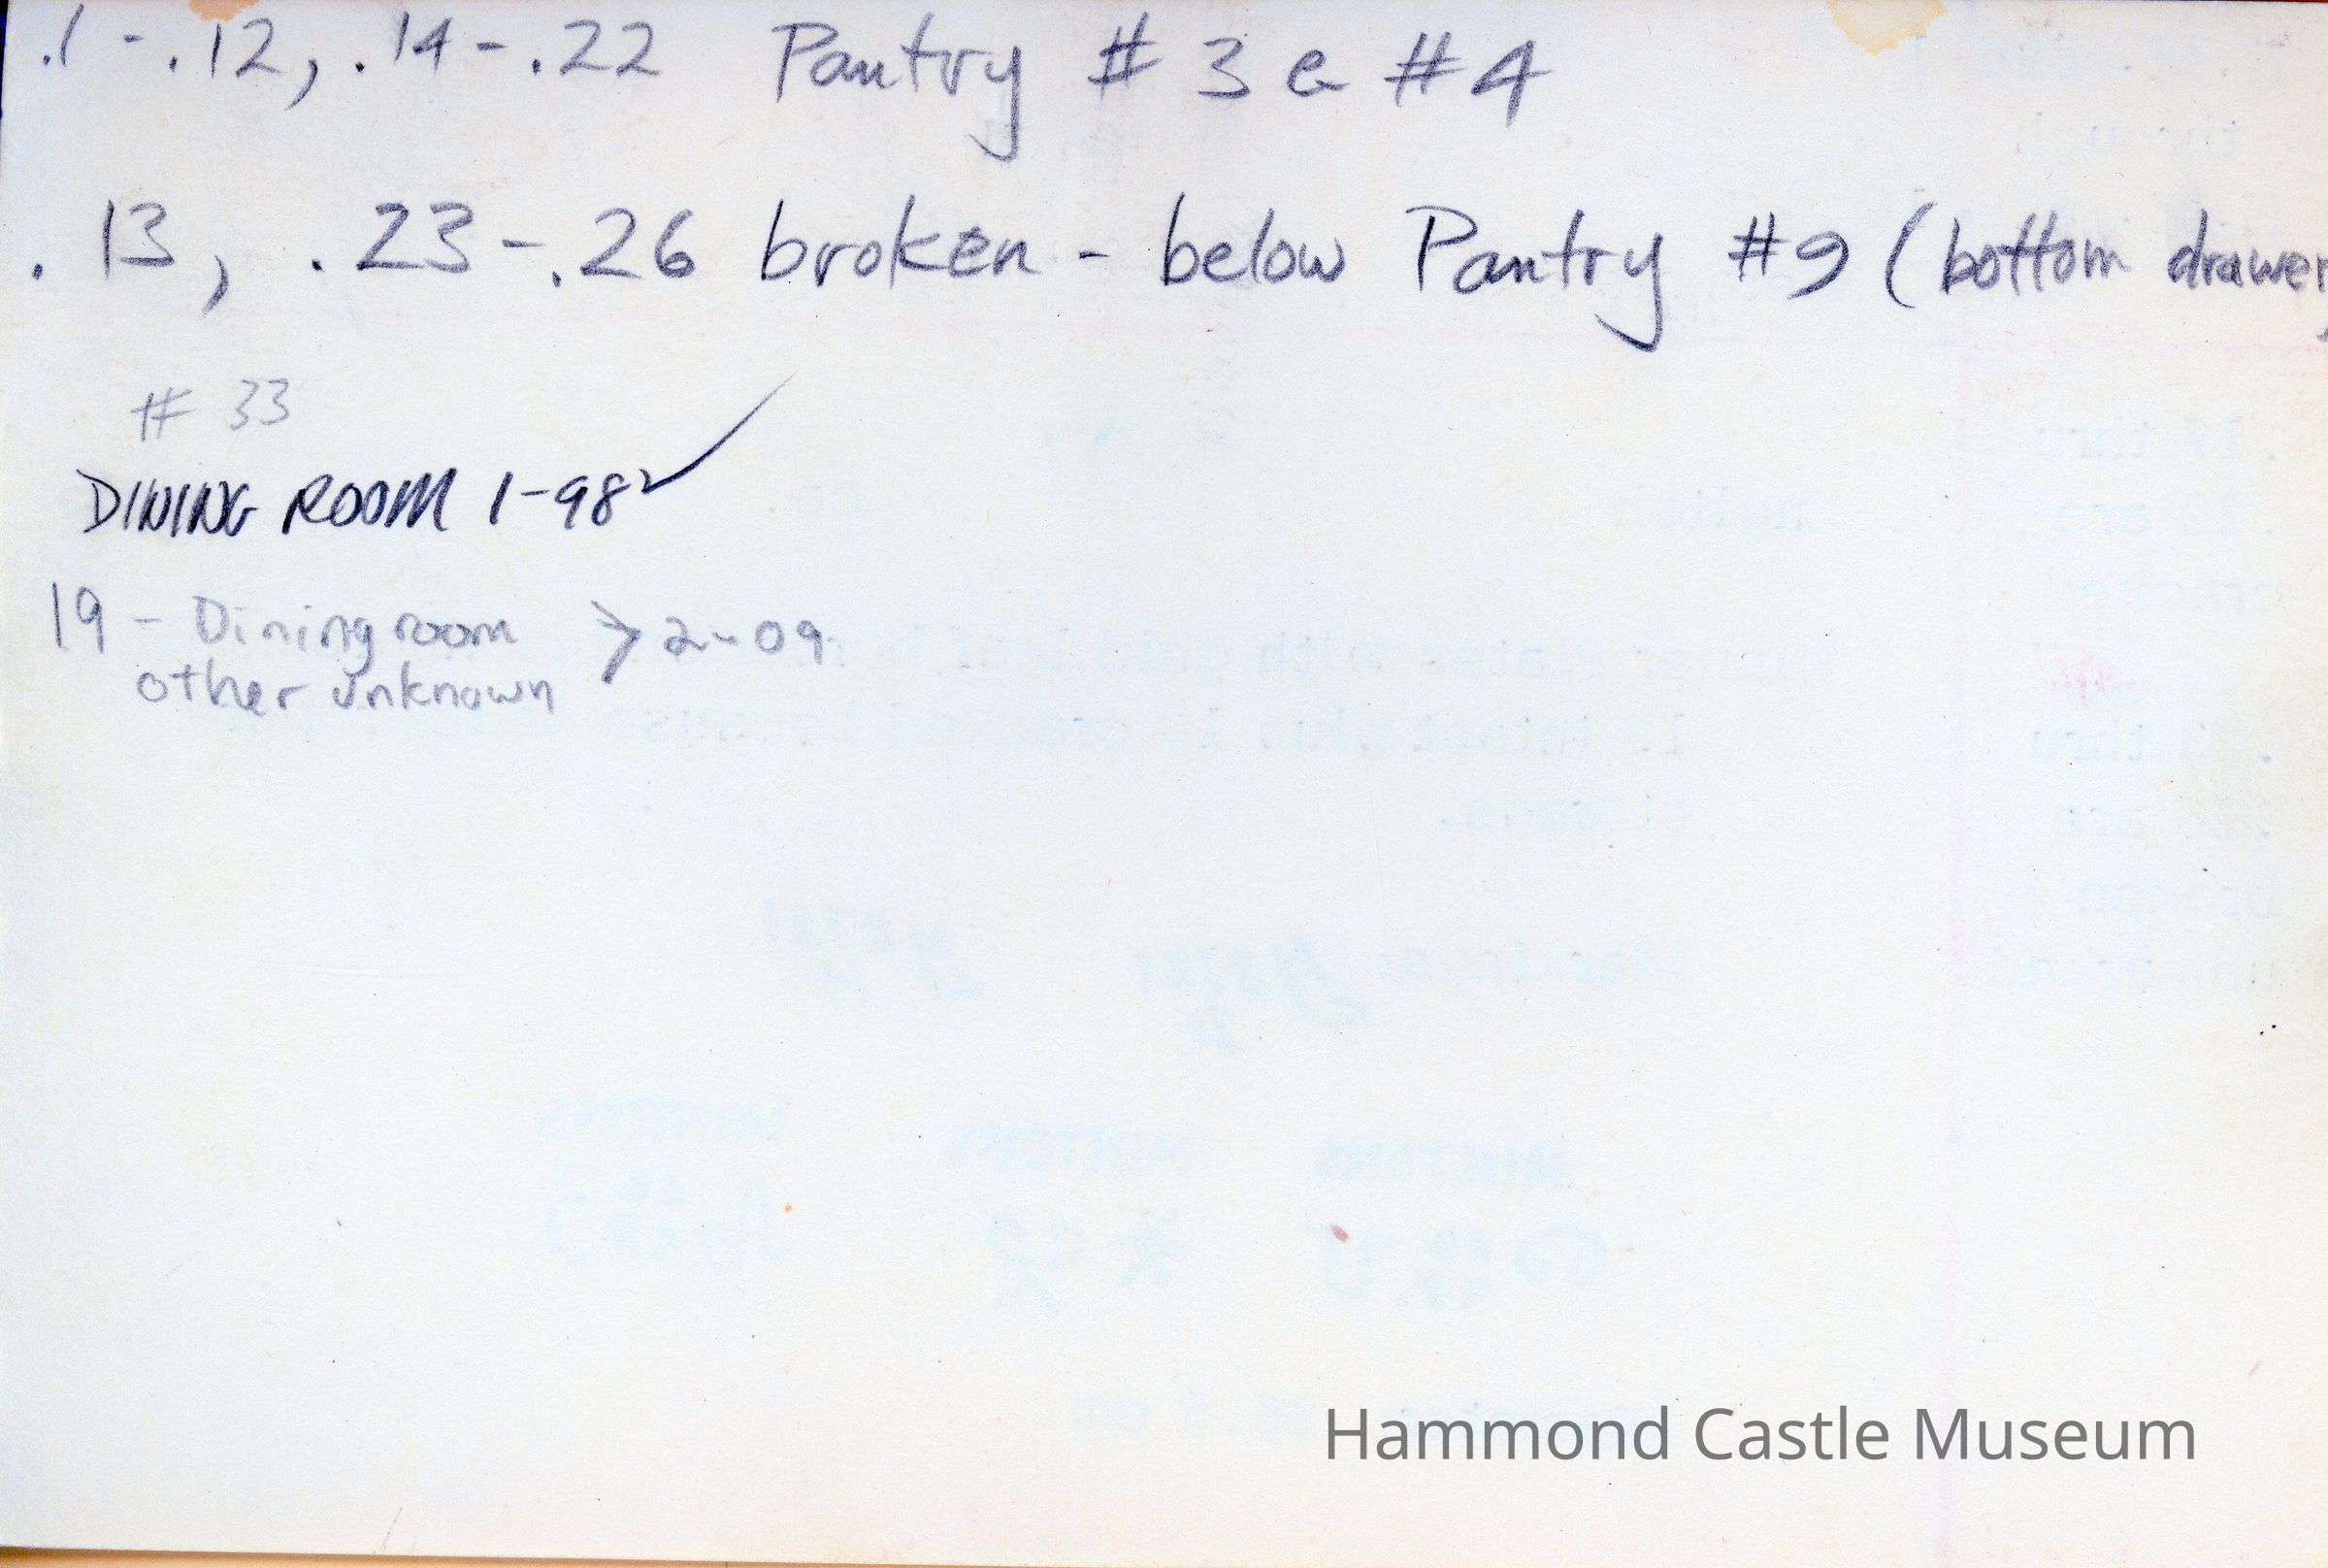 .1 - .12, .14 - .22 Pantry # 3 & #4
.13, .23 - .26 broken - below Pantry #9 (bottom drawer)
# 33
DINING ROOM 1-98 ✓
19 - Dining room > 2-09
other unknown
Hammond Castle Museum